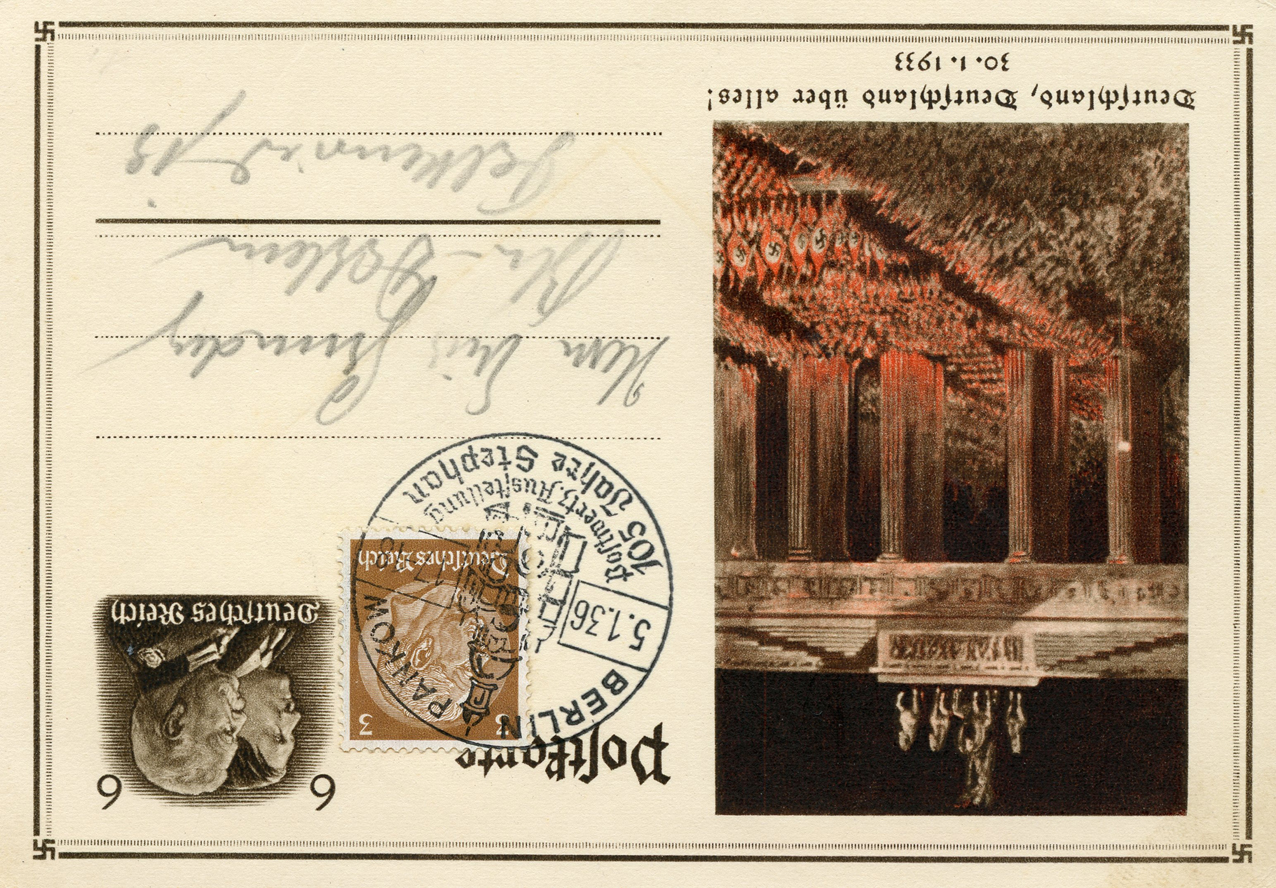 Deutſchland, Deutſchland über alles!
30. 1. 1933
Poſtkarte
6 6
Deutſches Reich
3 3
Deutſches Reich
BERLIN PANKOW
5.1.36
Poſtwertz. Ausſtellung
105 Jahre Stephan
Herrn
Bln-Dahlem
Falkenried 13